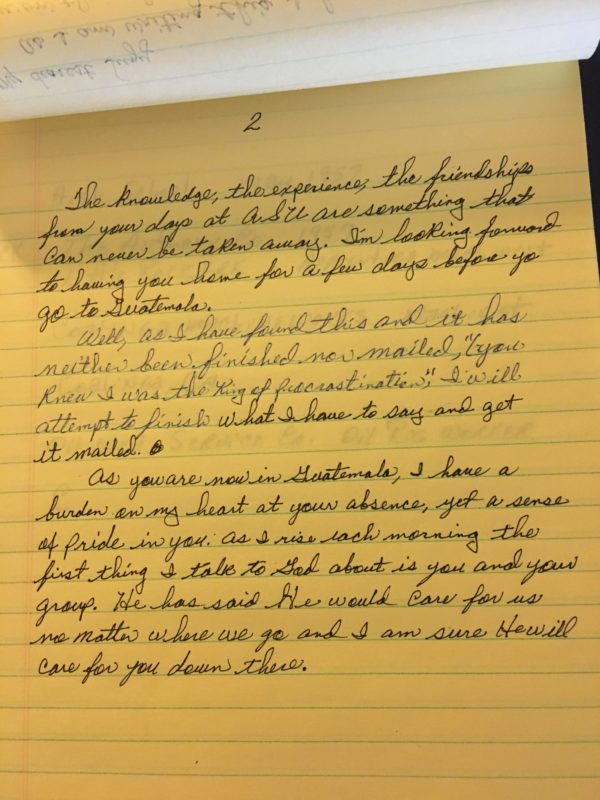 My dearest Suzy
As I am writing this
2
The knowledge, the experience, the friendships
from your days at ASU are something that
can never be taken away. I'm looking forward
to having you home for a few days before yo
go to Guatemala.
Well, as I have found this and it has
neither been finished nor mailed, "(you
knew I was the King of Procrastination", I will
attempt to finish what I have to say and get
it mailed.
As you are now in Guatemala, I have a
burden on my heart at your absence, yet a sense
of pride in you. As I rise each morning the
first thing I talk to God about is you and your
group. He has said He would care for us
no matter where we go and I am sure He will
care for you down there.